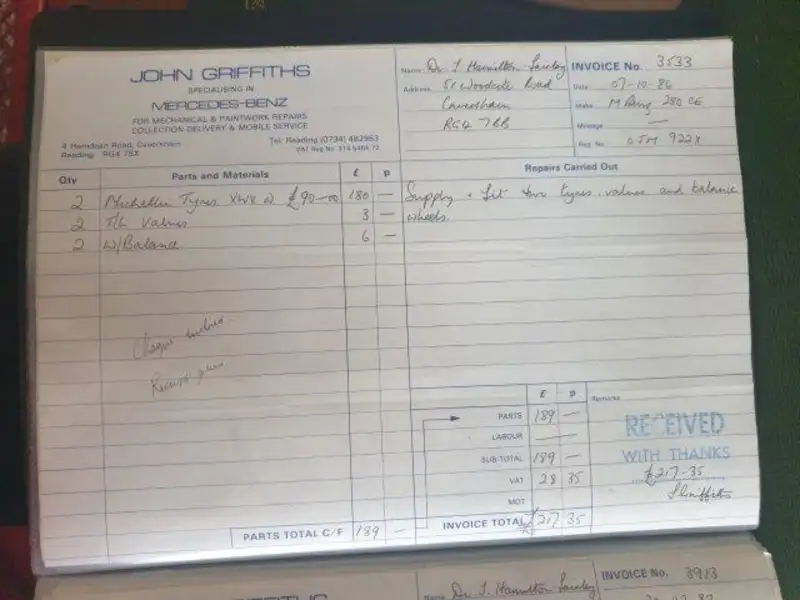 JOHN GRIFFITHS
SPECIALISING IN
MERCEDES-BENZ
FOR MECHANICAL & PAINTWORK REPAIRS
COLLECTION-DELIVERY & MOBILE SERVICE
4 Hemdean Road, Caversham
Reading RG4 7SX
Tel: Reading (0734) 482963
VAT Reg No
Name Dr J Hamilton
Address 51 Woodcote Road
Caversham
RG4 7BB
INVOICE No. 3533
Date 07-10-86
Make M Benz 280 CE
Mileage —
Reg. No. 922X
Qty Parts and Materials £ p
2 Michelin Tyres XWX @ £90-00 180 —
2 T/L Valves 3 —
2 W/Balance 6 —
Repairs Carried Out
Supply + fit two tyres, valves and balance
wheels.
Cheque
£ p
PARTS 189 —
LABOUR —
SUB-TOTAL 189 —
VAT 28 35
MOT
INVOICE TOTAL £217 35
PARTS TOTAL C/F 189 —
Remarks
RECEIVED
WITH THANKS
£217-35
J Griffiths
JOHN GRIFFITHS
Name Dr J. Hamilton
INVOICE No. 3913